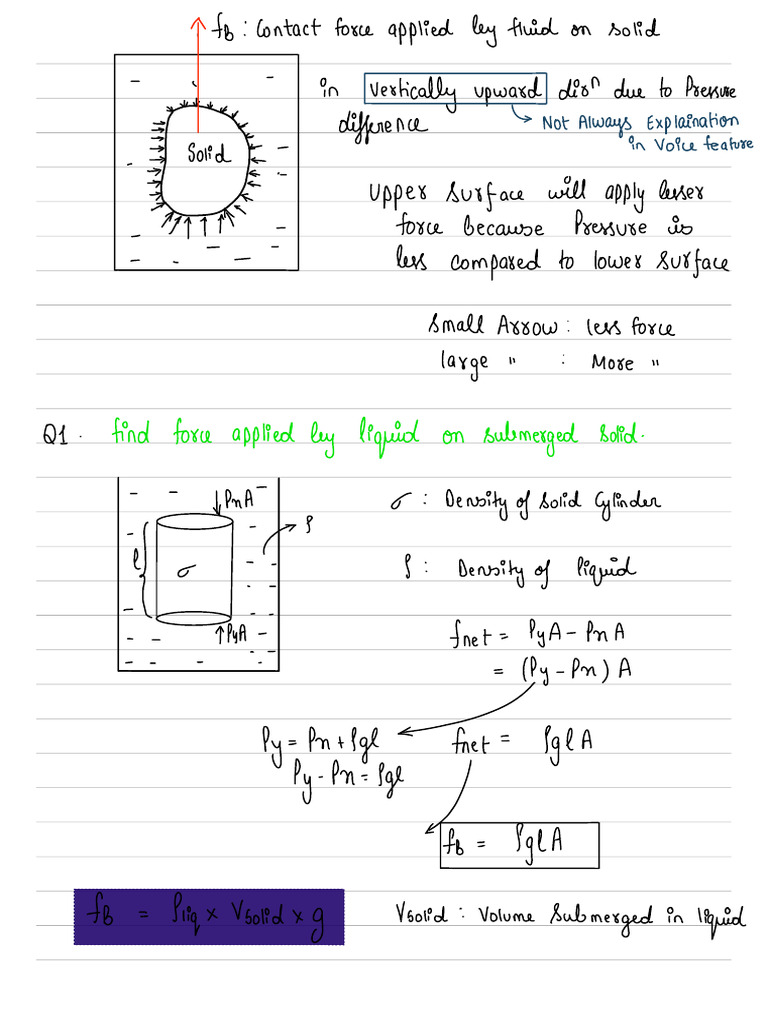 fB : Contact force applied by fluid on solid
in vertically upward dirⁿ due to Pressure
difference
→ Not Always Explaination
in Voice feature
Solid
Upper Surface will apply lesser
force because Pressure is
less compared to lower surface
Small Arrow : less force
large " : More "
Q1. find force applied by liquid on submerged solid.
PxA
σ : Density of Solid Cylinder
ρ
l
σ
ρ : Density of liquid
PyA
fnet = PyA - PxA
= (Py - Px) A
Py = Px + ρgl
fnet = ρglA
Py - Px = ρgl
fB = ρglA
fB = ρliq × Vsolid × g
Vsolid : Volume Submerged in liquid